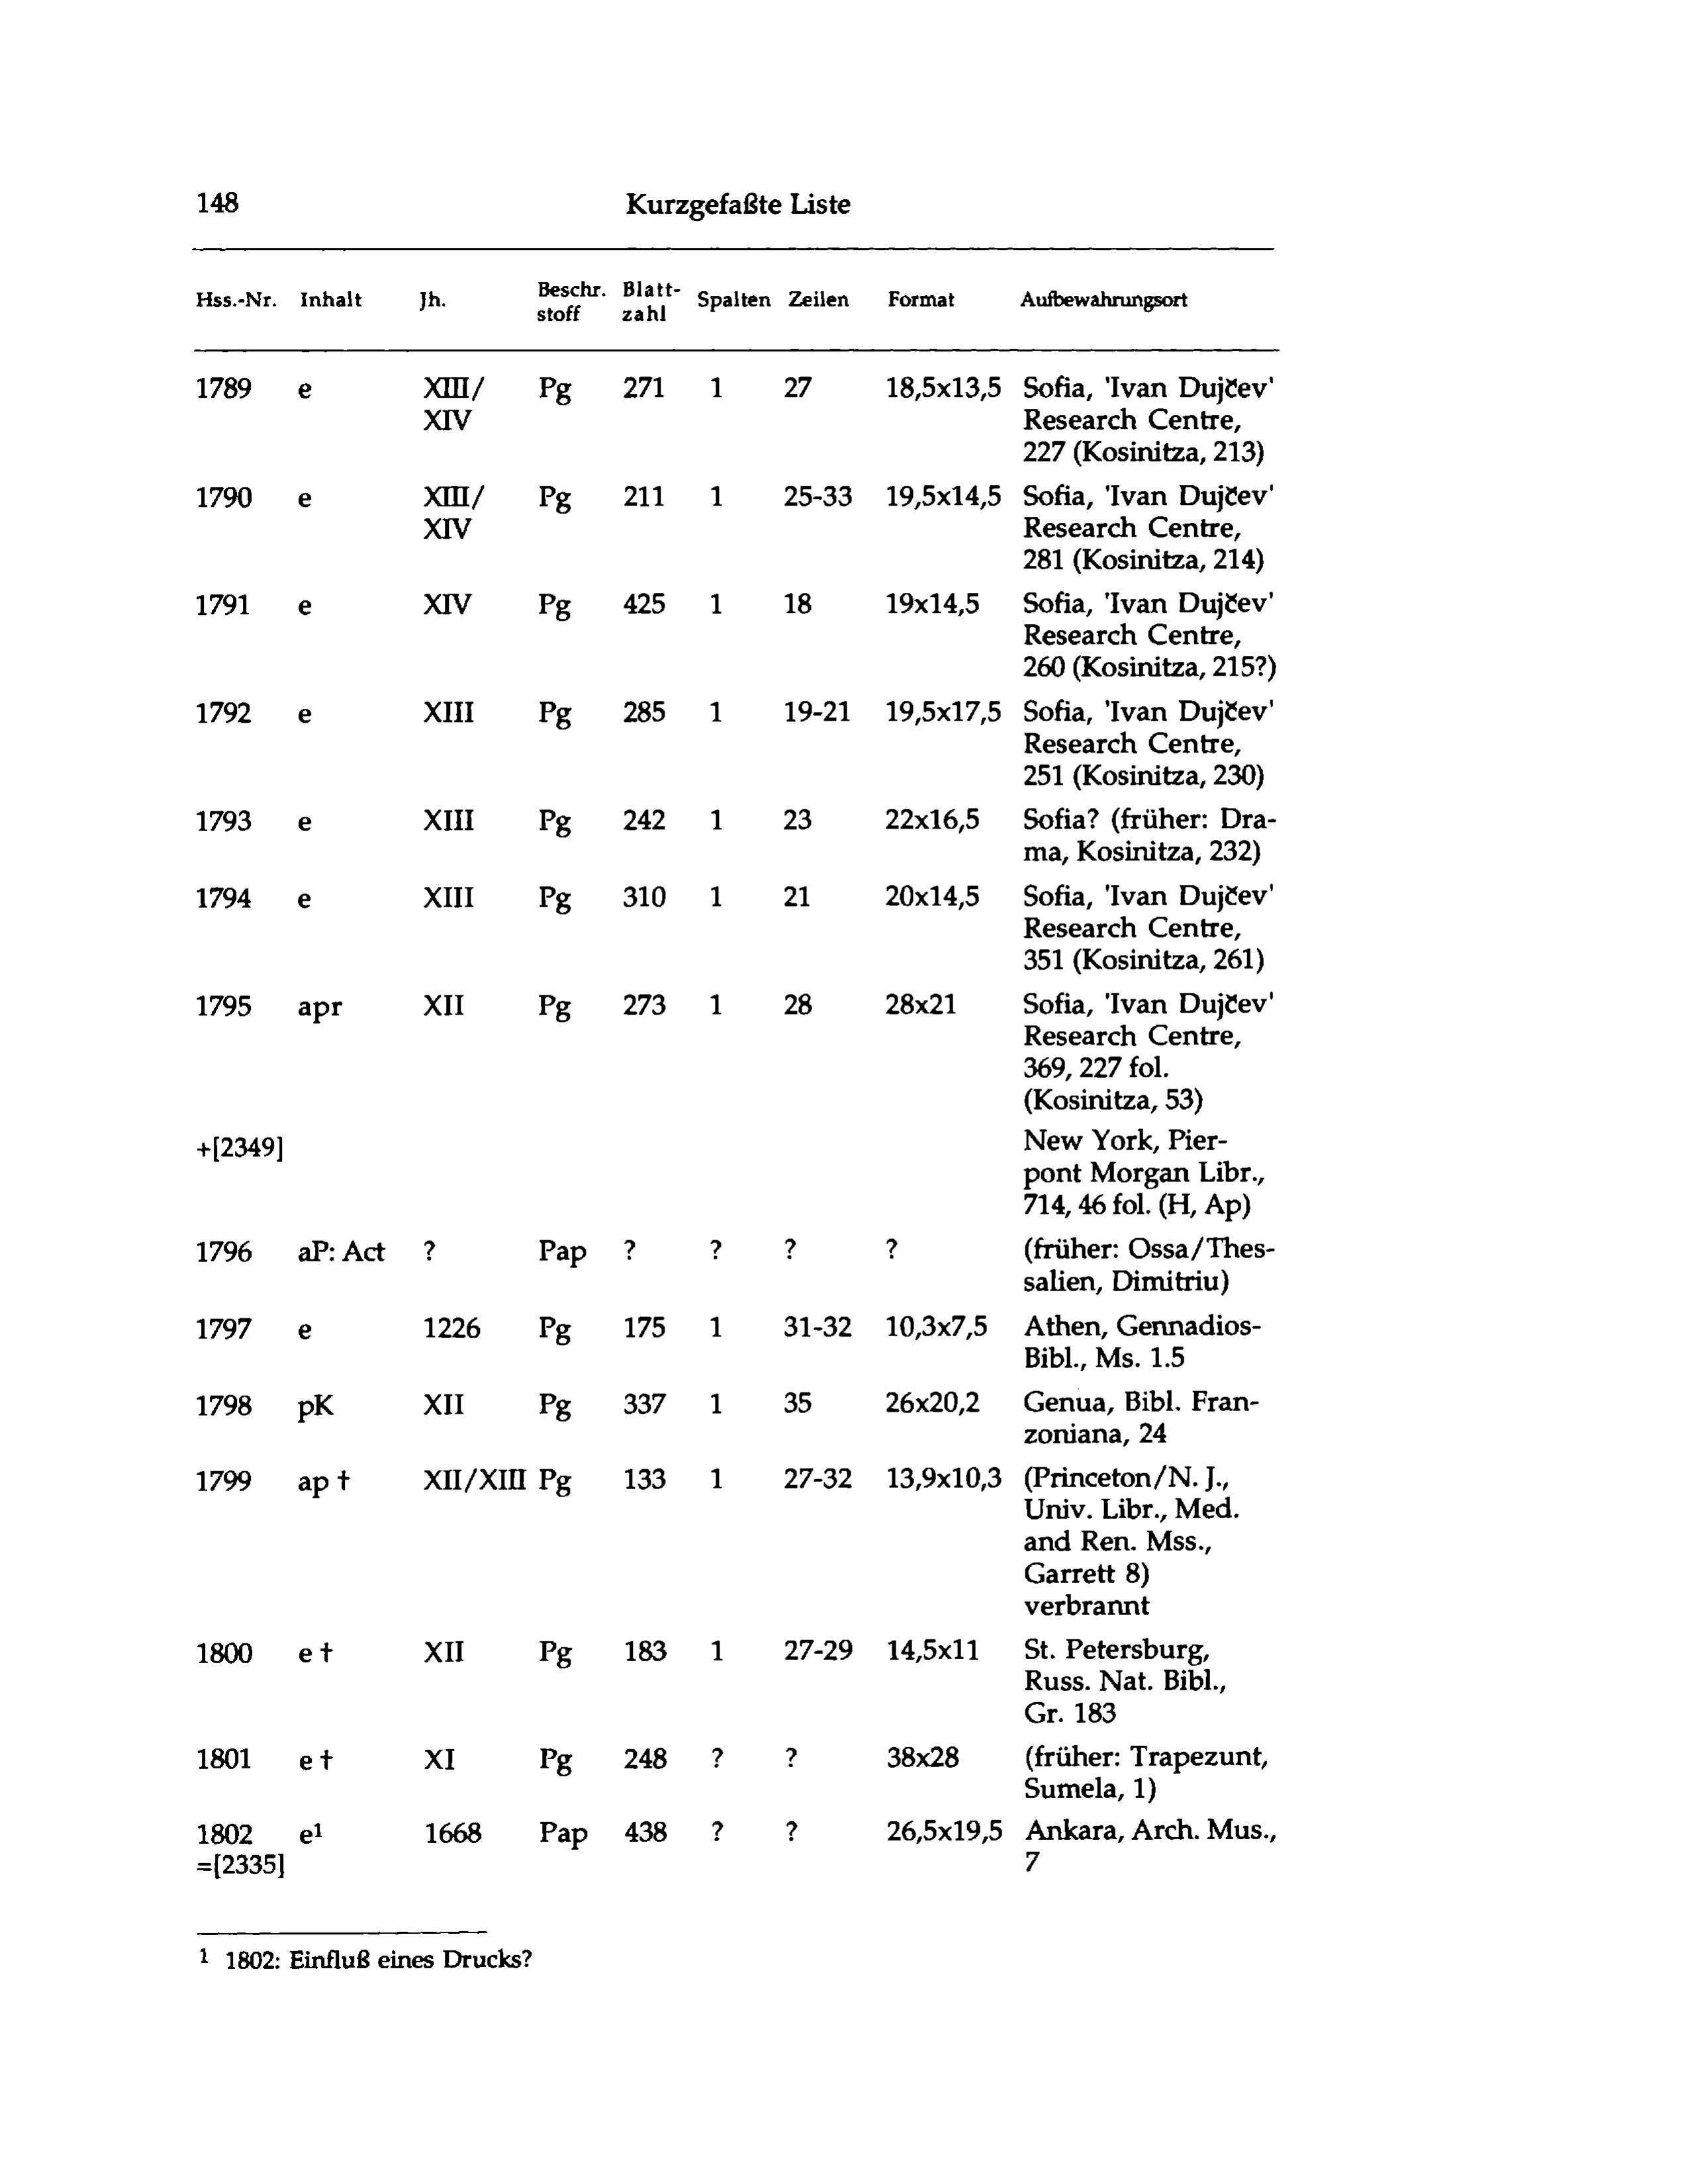 148 Kurzgefaßte Liste
Hss.-Nr. Inhalt Jh. Beschr. stoff Blatt- zahl Spalten Zeilen Format Aufbewahrungsort
1789 e XIII/ Pg 271 1 27 18,5x13,5 Sofia, 'Ivan Dujčev'
XIV Research Centre,
227 (Kosinitza, 213)
1790 e XIII/ Pg 211 1 25-33 19,5x14,5 Sofia, 'Ivan Dujčev'
XIV Research Centre,
281 (Kosinitza, 214)
1791 e XIV Pg 425 1 18 19x14,5 Sofia, 'Ivan Dujčev'
Research Centre,
260 (Kosinitza, 215?)
1792 e XIII Pg 285 1 19-21 19,5x17,5 Sofia, 'Ivan Dujčev'
Research Centre,
251 (Kosinitza, 230)
1793 e XIII Pg 242 1 23 22x16,5 Sofia? (früher: Dra-
ma, Kosinitza, 232)
1794 e XIII Pg 310 1 21 20x14,5 Sofia, 'Ivan Dujčev'
Research Centre,
351 (Kosinitza, 261)
1795 apr XII Pg 273 1 28 28x21 Sofia, 'Ivan Dujčev'
Research Centre,
369, 227 fol.
(Kosinitza, 53)
+[2349] New York, Pier-
pont Morgan Libr.,
714, 46 fol. (H, Ap)
1796 aP: Act ? Pap ? ? ? ? (früher: Ossa/Thes-
salien, Dimitriu)
1797 e 1226 Pg 175 1 31-32 10,3x7,5 Athen, Gennadios-
Bibl., Ms. 1.5
1798 pK XII Pg 337 1 35 26x20,2 Genua, Bibl. Fran-
zoniana, 24
1799 ap † XII/XIII Pg 133 1 27-32 13,9x10,3 (Princeton/N. J.,
Univ. Libr., Med.
and Ren. Mss.,
Garrett 8)
verbrannt
1800 e † XII Pg 183 1 27-29 14,5x11 St. Petersburg,
Russ. Nat. Bibl.,
Gr. 183
1801 e † XI Pg 248 ? ? 38x28 (früher: Trapezunt,
Sumela, 1)
1802 e¹ 1668 Pap 438 ? ? 26,5x19,5 Ankara, Arch. Mus.,
=[2335] 7
¹ 1802: Einfluß eines Drucks?